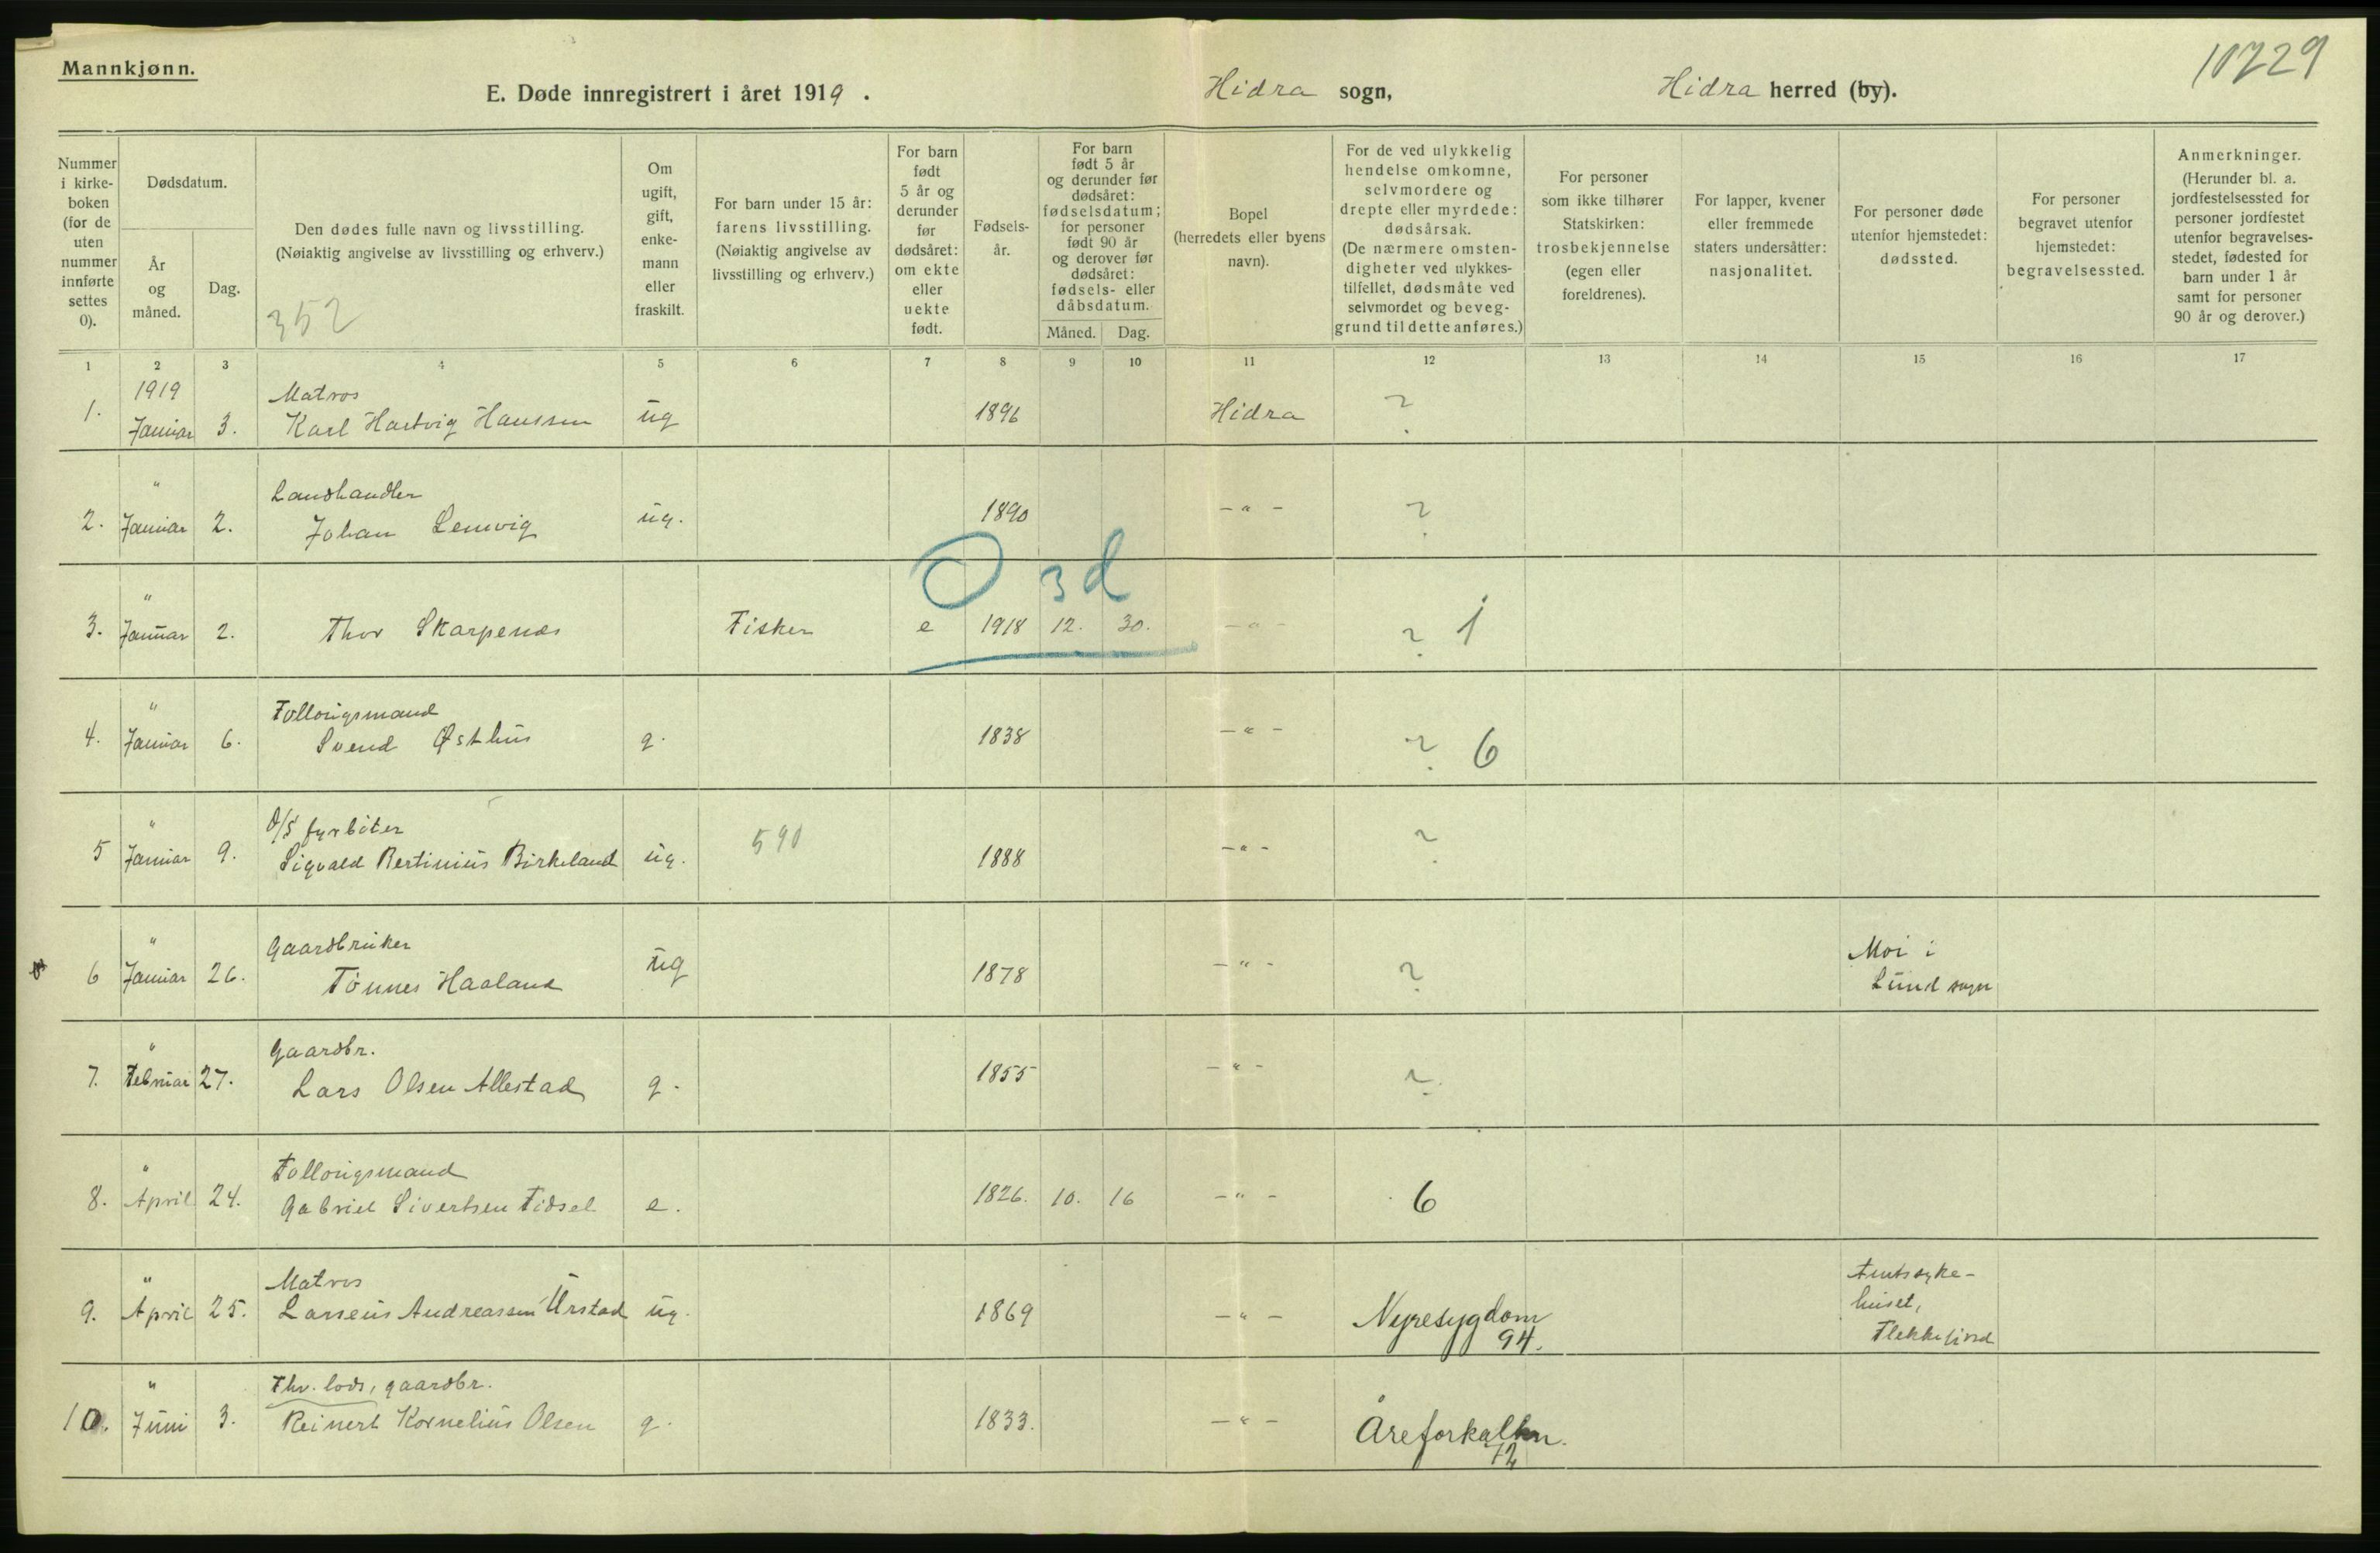 Mannkjønn.
10729
E. Døde innregistrert i året 1919. Hidra sogn, Hidra herred (by).
Nummer i kirke-boken (for de uten nummer innførte settes 0).
Dødsdatum.
År og måned.
Dag.
Den dødes fulle navn og livsstilling.
(Nøiaktig angivelse av livsstilling og erhverv.)
352
Om ugift, gift, enke-mann eller fraskilt.
For barn under 15 år: farens livsstilling.
(Nøiaktig angivelse av livsstilling og erhverv.)
For barn født 5 år og derunder før dødsåret: om ekte eller uekte født.
Fødsels-år.
For barn født 5 år og derunder før dødsåret: fødselsdatum; for personer født 90 år og derover før dødsåret: fødsels- eller dåbsdatum.
Måned. Dag.
Bopel (herredets eller byens navn).
For de ved ulykkelig hendelse omkomne, selvmordere og drepte eller myrdede: dødsårsak.
(De nærmere omsten-digheter ved ulykkes-tilfellet, dødsmåte ved selvmordet og beveg-grund til dette anføres.)
For personer som ikke tilhører Statskirken: trosbekjennelse (egen eller foreldrenes).
For lapper, kvener eller fremmede staters undersåtter: nasjonalitet.
For personer døde utenfor hjemstedet: dødssted.
For personer begravet utenfor hjemstedet: begravelsessted.
Anmerkninger.
(Herunder bl. a. jordfestelsessted for personer jordfestet utenfor begravelses-stedet, fødested for barn under 1 år samt for personer 90 år og derover.)
1 2 3 4 5 6 7 8 9 10 11 12 13 14 15 16 17
1919 Matros
1. Januar 3. Karl Hartvig Hanssen ug 1896 Hidra ?
" Landhandler
2. Januar 2. Johan Lemvig ug. 1890 -"- ?
O 3d
"
3. Januar 2. Thor Skarpenes Fisker e 1918 12. 30. -"- ? 1
" Follougsmand
4. Januar 6. Svend Østhus g. 1838 -"- ? 6
" D/S fyrbøter
5 Januar 9. Sigvald Bertinius Birkeland ug. 590 1888 -"- ?
" Gaardbruker Moi i
6 Januar 26. Tønnes Haaland ug 1878 -"- ? Lund sogn
" Gaardbr.
7. Februar 27. Lars Olsen Allestad g. 1855 -"- ?
" Follougsmand
8. April 24. Gabriel Sivertsen Fidsel e. 1826. 10. 16 -"- 6
" Matros Amtssyke-
huset,
9. April 25. Larseus Andreassen Urstad ug. 1869 -"- Nyresygdom Flekkefjord
94.
" Fhv. lods, gaardbr.
10. Juni 3. Reinert Kornelius Olsen g. 1833. -"- Åreforkalkn.